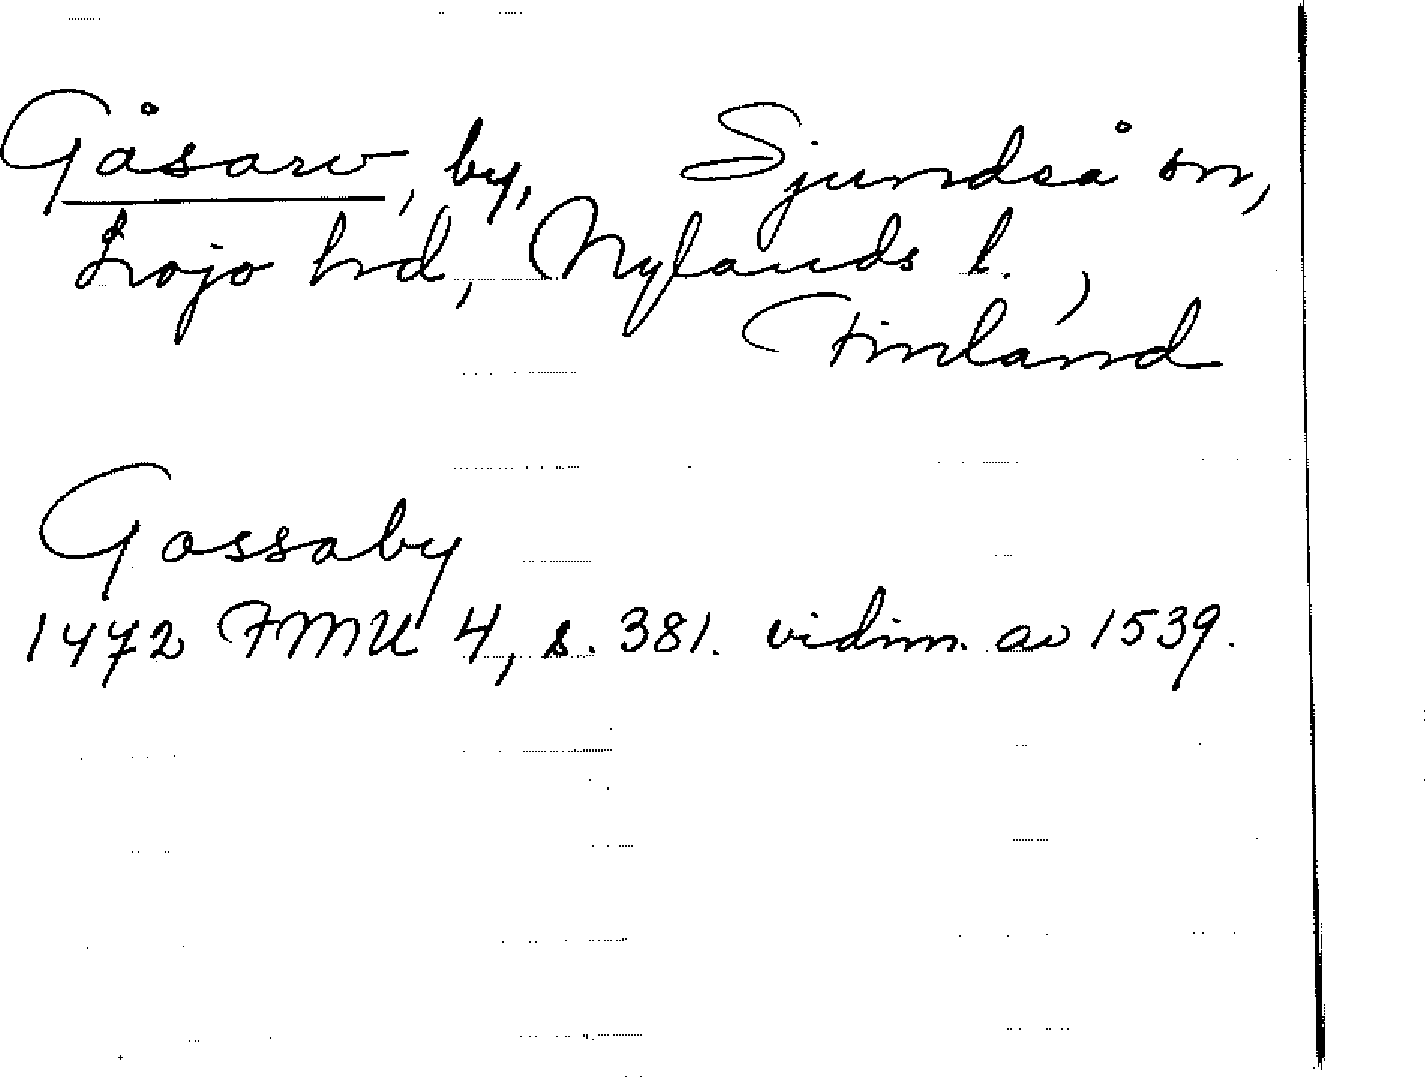 Gåsarv, by, Sjundeå sn,
Lojo hd, Nylands l.,
Finland
Gossaby
1472 FMU 4, s. 381. vidim. av 1539.